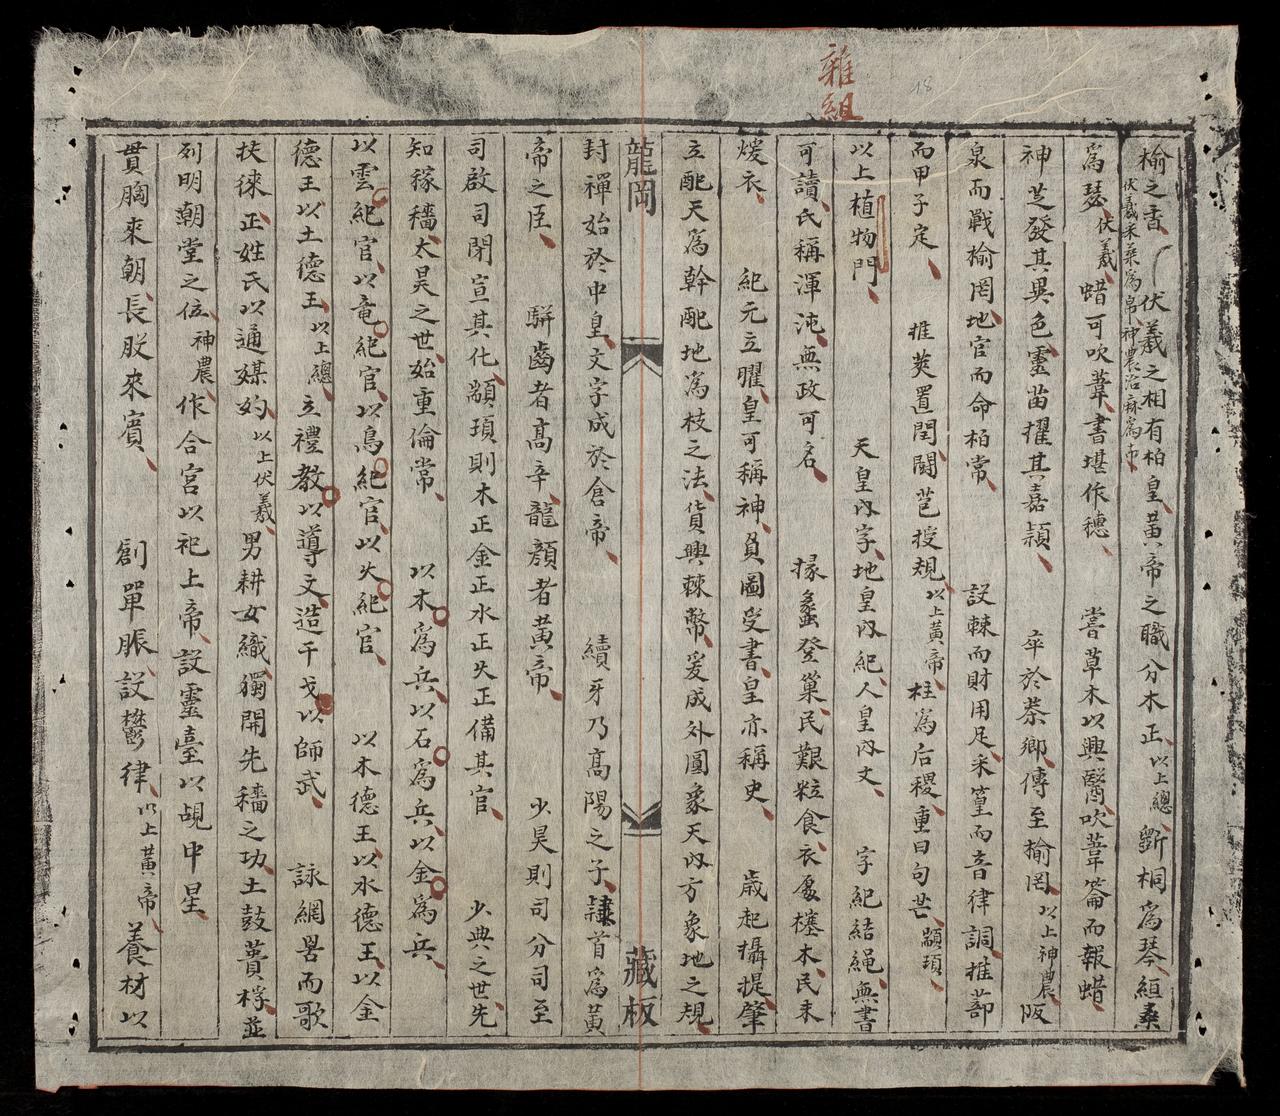 雜組
18
榆之香、伏羲之相有柏皇、黃帝之職分木正、以上總、斷桐為琴、絙桑
伏羲采蕐為帛、神農治麻為布、
為瑟、伏羲、蜡可吹葦、書堪作穗、嘗草木以興醫、吹葦籥而報蜡、
神芝發其異色、靈苗擢其嘉穎、卒於茶鄉、傳至榆罔、以上神農、阪
泉而戰榆罔、地官而命柏常、設棘而財用足、采篁而音律調、推蔀
而甲子定、推莢置閏、闘苞授規、以上黃帝、柱為后稷、重曰句芒、顓頊、
以上植物門、天皇內字、地皇內紀、人皇內文、字紀結繩、無書
可讀、氏稱渾沌、無政可名、掾蠡登巢、民艱粒食、衣處橏木、民未
煖衣、紀元立曜、皇可稱神、負圖受書、皇亦稱史、歲起攝提、肇
立配天為幹配地為枝之法、貨興棘幣、爰成外圓象天內方象地之規、
龍岡 藏板
封禪始於中皇、文字成於倉帝、續牙乃高陽之子、隸首為黃
帝之臣、駢齒者高辛、龍顏者黃帝、少昊則司分司至
司啟司閉宣其化、顓頊則木正金正水正火正備其官、少典之世、先
知稼穡、太昊之世、始重倫常、以木為兵、以石為兵、以金為兵、
以雲紀官、以竜紀官、以鳥紀官、以火紀官、以木德王、以水德王、以金
德王、以土德王、以上總、立禮教以導文、造干戈以師武、詠網罟而歌
扶徠、正姓氏以通媒妁、以上伏羲、男耕女織、獨開先穡之功、土鼓蕢桴、並
列明朝堂之位、神農、作合宮以祀上帝、設靈臺以覘中星、
貫胸來朝、長股來賓、創單脤、設鬱律、以上黃帝、養材以